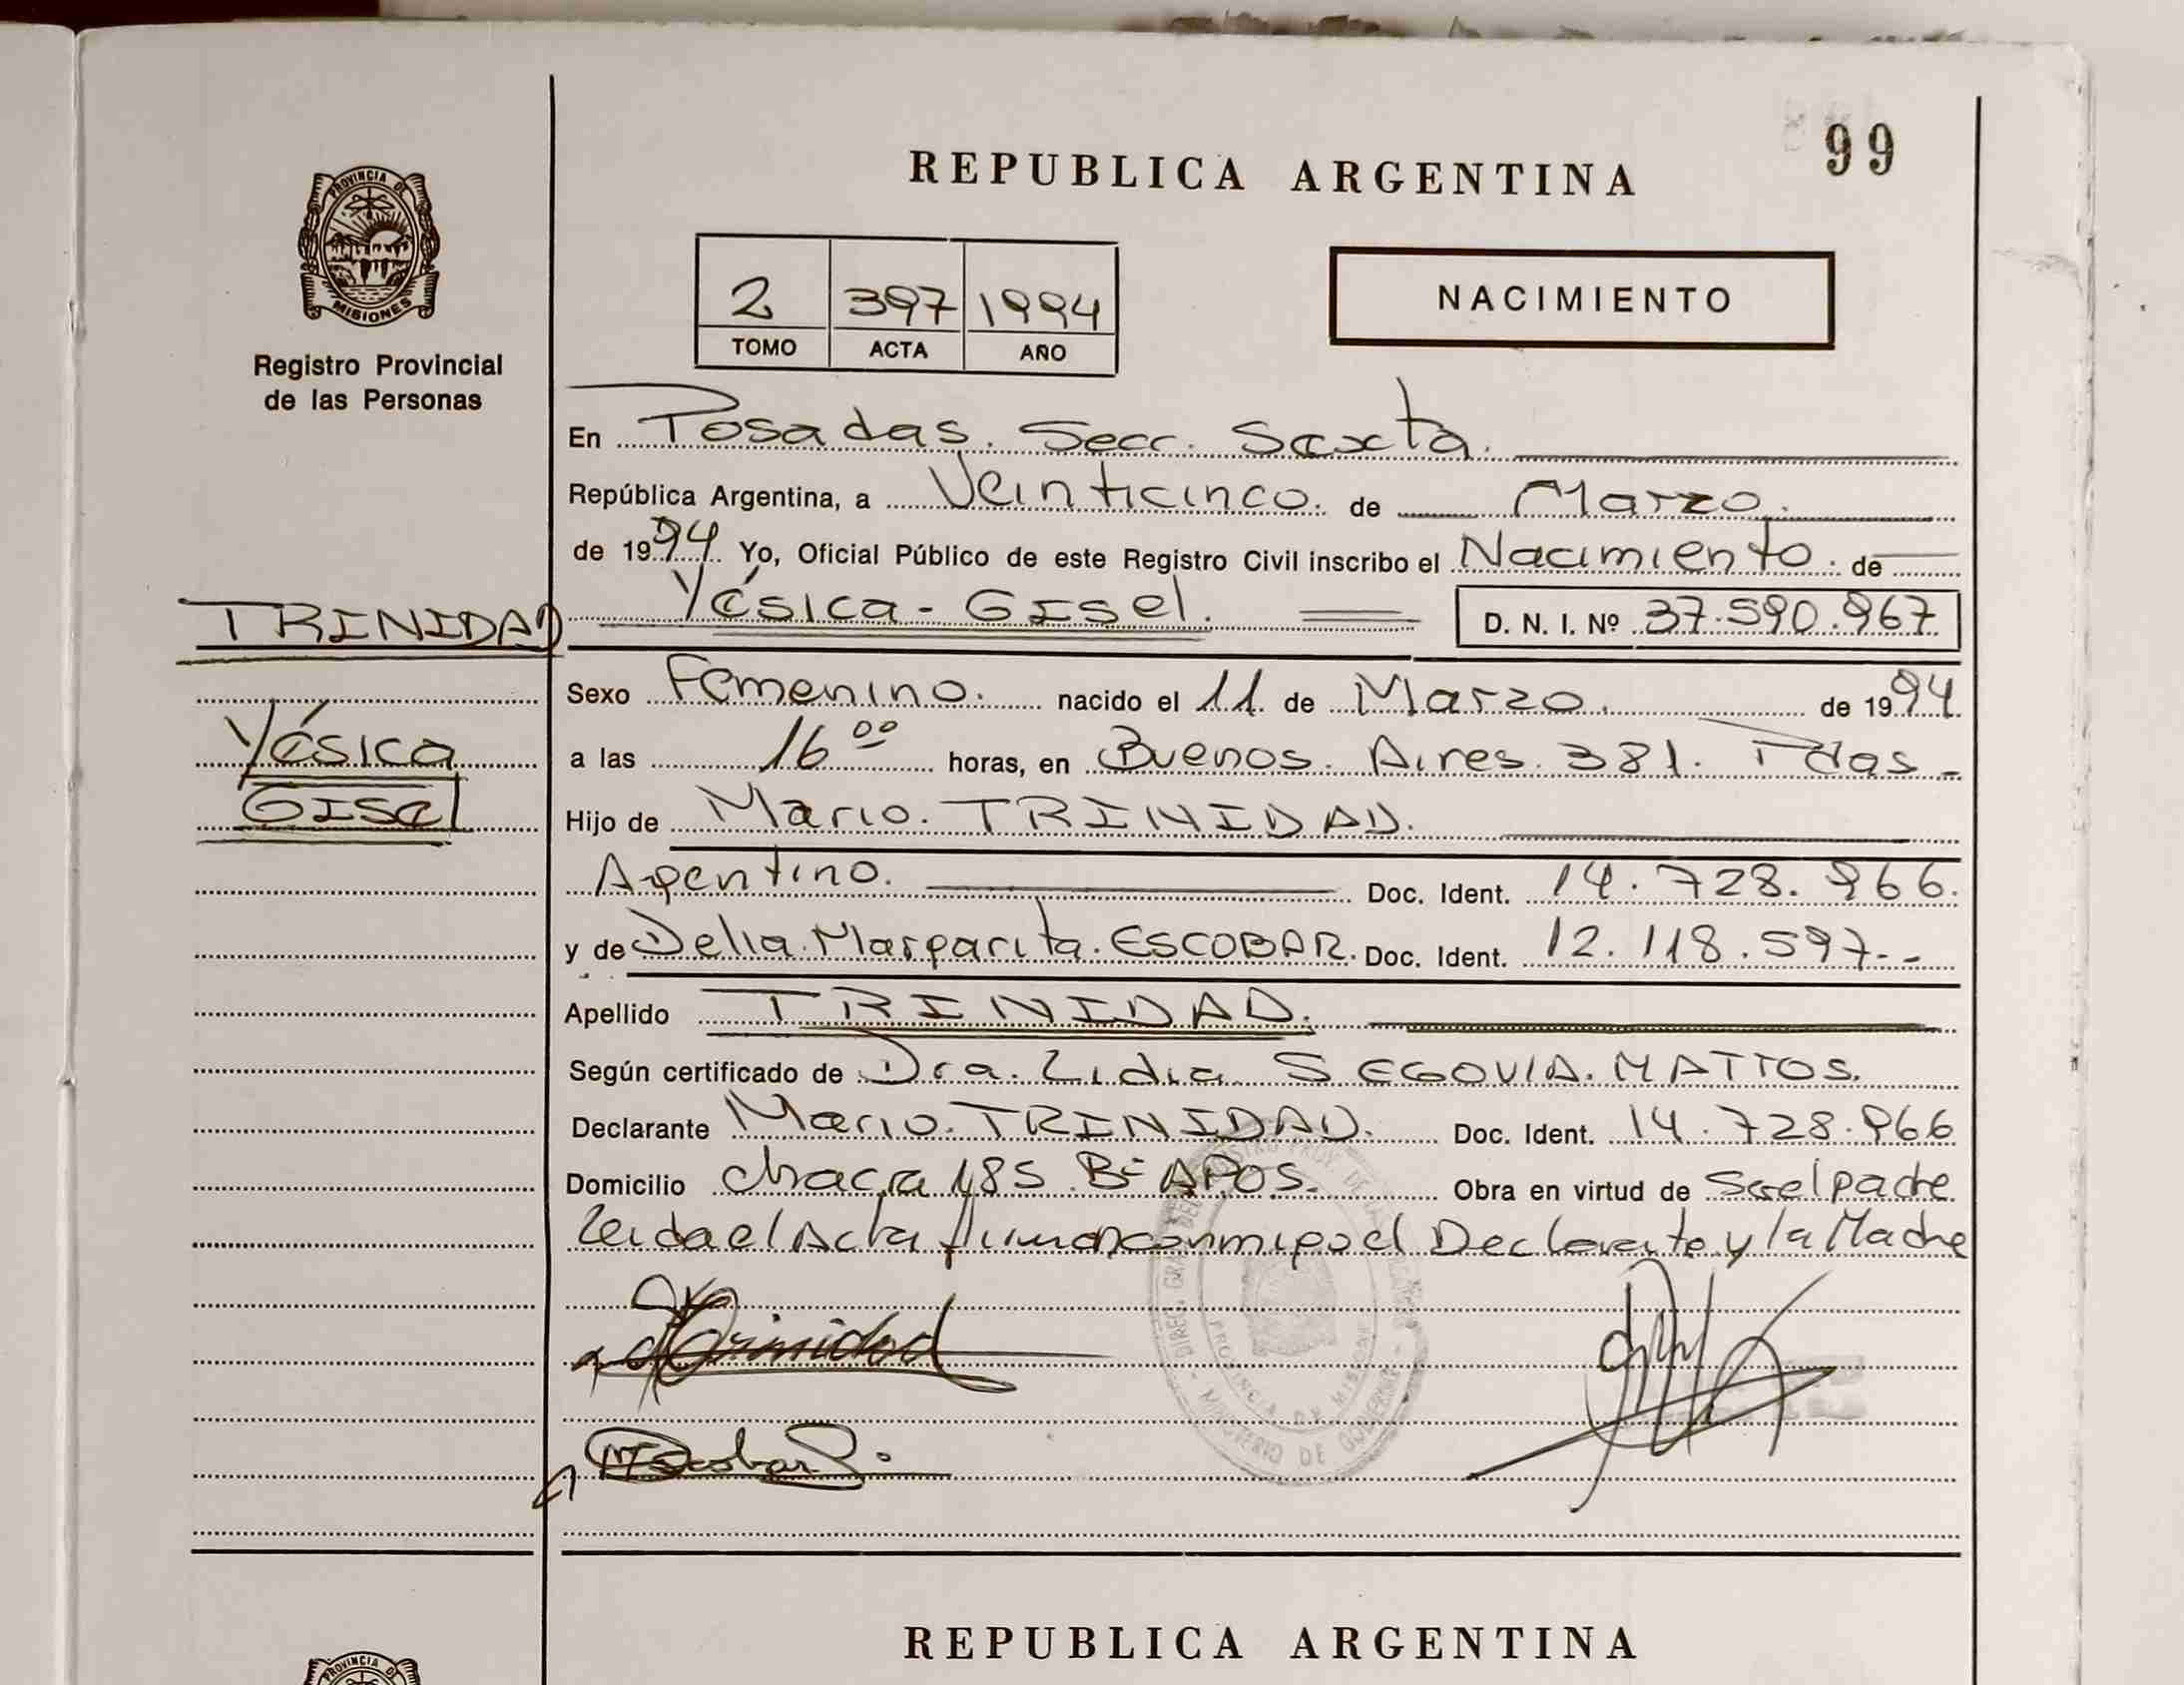 99
REPUBLICA ARGENTINA
PROVINCIA DE
MISIONES
Registro Provincial
de las Personas
2 397 1994
TOMO ACTA AÑO
NACIMIENTO
En Posadas. Secc. Sexta.
República Argentina, a Veinticinco. de Marzo.
de 1994. Yo, Oficial Público de este Registro Civil inscribo el Nacimiento. de
TRINIDAD
Yésica - Gisel. D. N. I. Nº 37.590.967
Sexo Femenino. nacido el 11. de Marzo. de 1994.
Yésica
Gisel
a las 16 00 horas, en Buenos. Aires. 381. Pdas -
Hijo de Mario. TRINIDAD.
Argentino. Doc. Ident. 14.728.966.
y de Delia. Margarita. ESCOBAR. Doc. Ident. 12.118.597.--
Apellido TRINIDAD.
Según certificado de Dra. Lidia SEGOVIA. MATTOS.
Declarante Mario. TRINIDAD. Doc. Ident. 14.728.966
Domicilio chacra 185. Bº APOS. Obra en virtud de Ser el padre
Leida el Acta firman conmigo el Declarante y la Madre
Trinidad
Escobar
PROVINCIA DE MISIONES
MINISTERIO DE GOBIERNO
REPUBLICA ARGENTINA
PROVINCIA DE